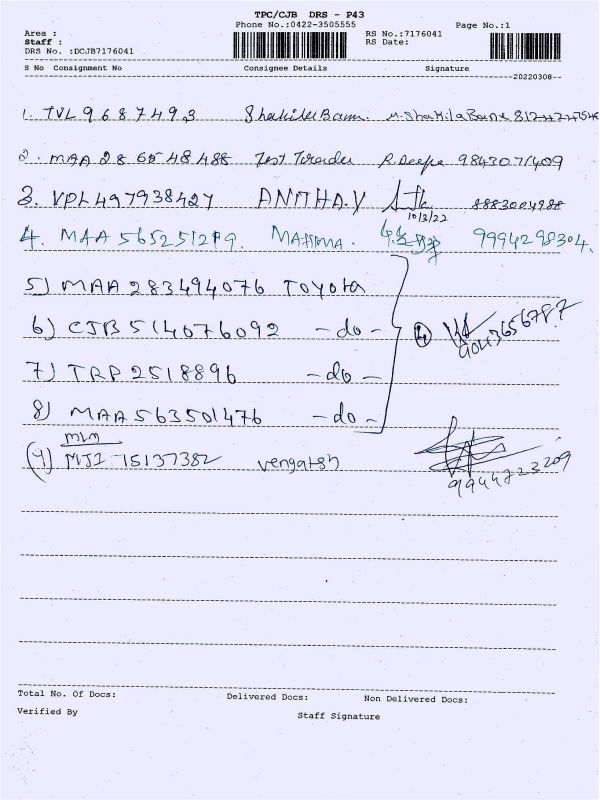 TPC/CJB DRS - P43
Phone No.:0422-3505555
Page No.:1
Area :
RS No.:7176041
Staff :
RS Date:
DRS No. :DCJB7176041
S No Consignment No Consignee Details Signature
20220308
1. TVL 9687493 Shakila Banu M. Shakila Banu
2. MAA 286548488 R. Deepa 9843071409
3. VPL 497938427 ANITHA.V 8883004988
10/3/22
4. MAA 565251289. MAHIMA. 9994298304.
5) MAA 283494076 TOYOTA
6) CJB 514076092 - do - 4
9043656787
7) TRP 2518896 - do -
8) MAA 563501476 - do -
MLM
(9) MJI 15137382 vengatesh 9944723209
Total No. Of Docs: Delivered Docs: Non Delivered Docs:
Verified By Staff Signature